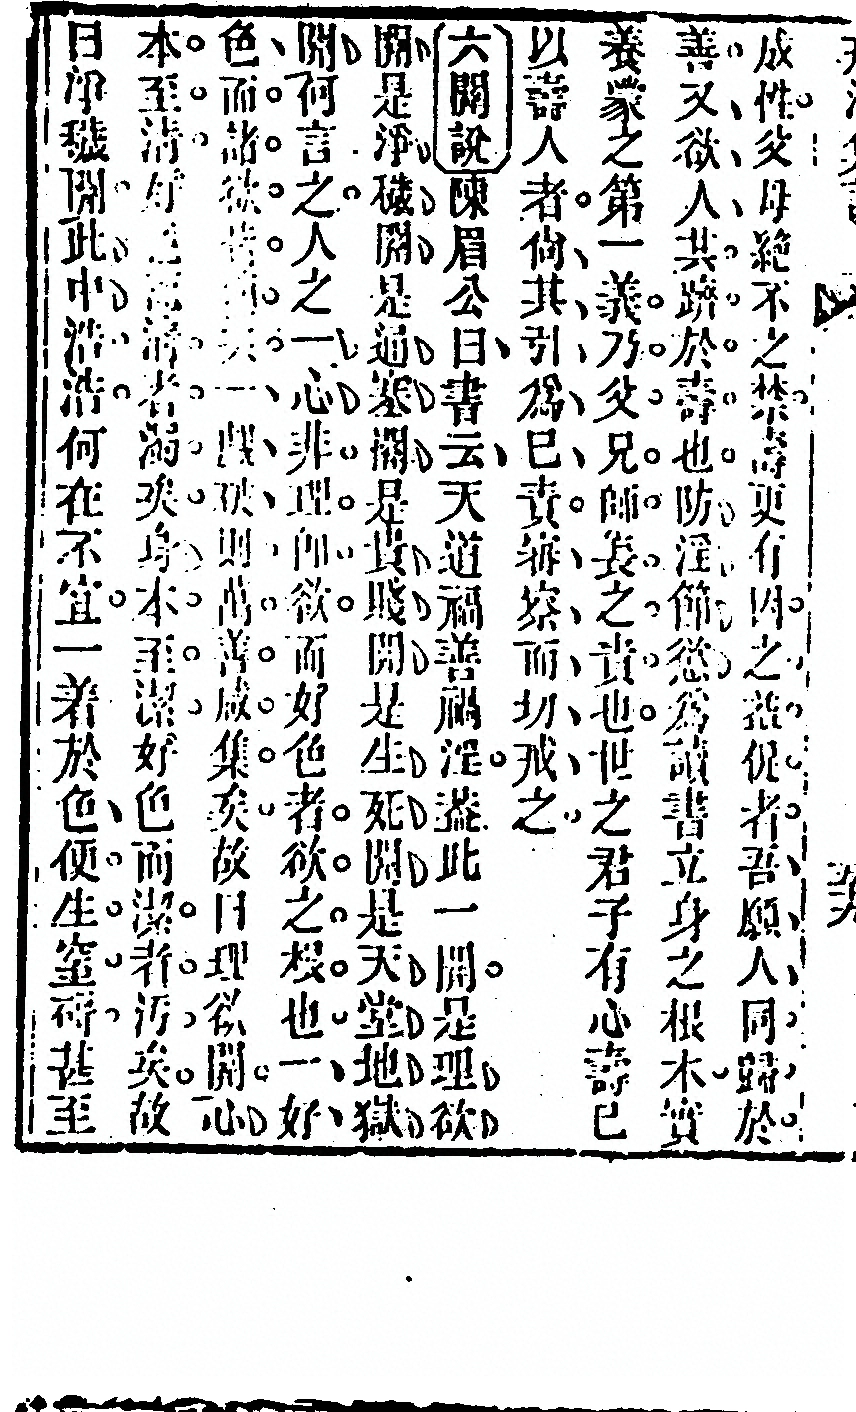 成性父母絕不之禁壽更有因之益促者吾願人同歸於
善又欲人共躋於壽也防淫節慾為讀書立身之根本實
養蒙之第一義乃父兄師長之責也世之君子有心壽已
以壽人者倘其引為已責審察而切戒之
六關說陳眉公曰書云天道福善禍淫蓋此一關是理欲
關是淨穢關是通塞關是貴賤關是生死關是天堂地獄
關何言之人之一心非理即欲而好色者欲之根也一好
色而諸欲一戲破則萬善咸集矣故曰理欲關心
本至清好而清者溺矣身本至潔好色而潔者汚矣故
曰淨穢關此中浩浩何在不宜一着於色便生窒碍甚至